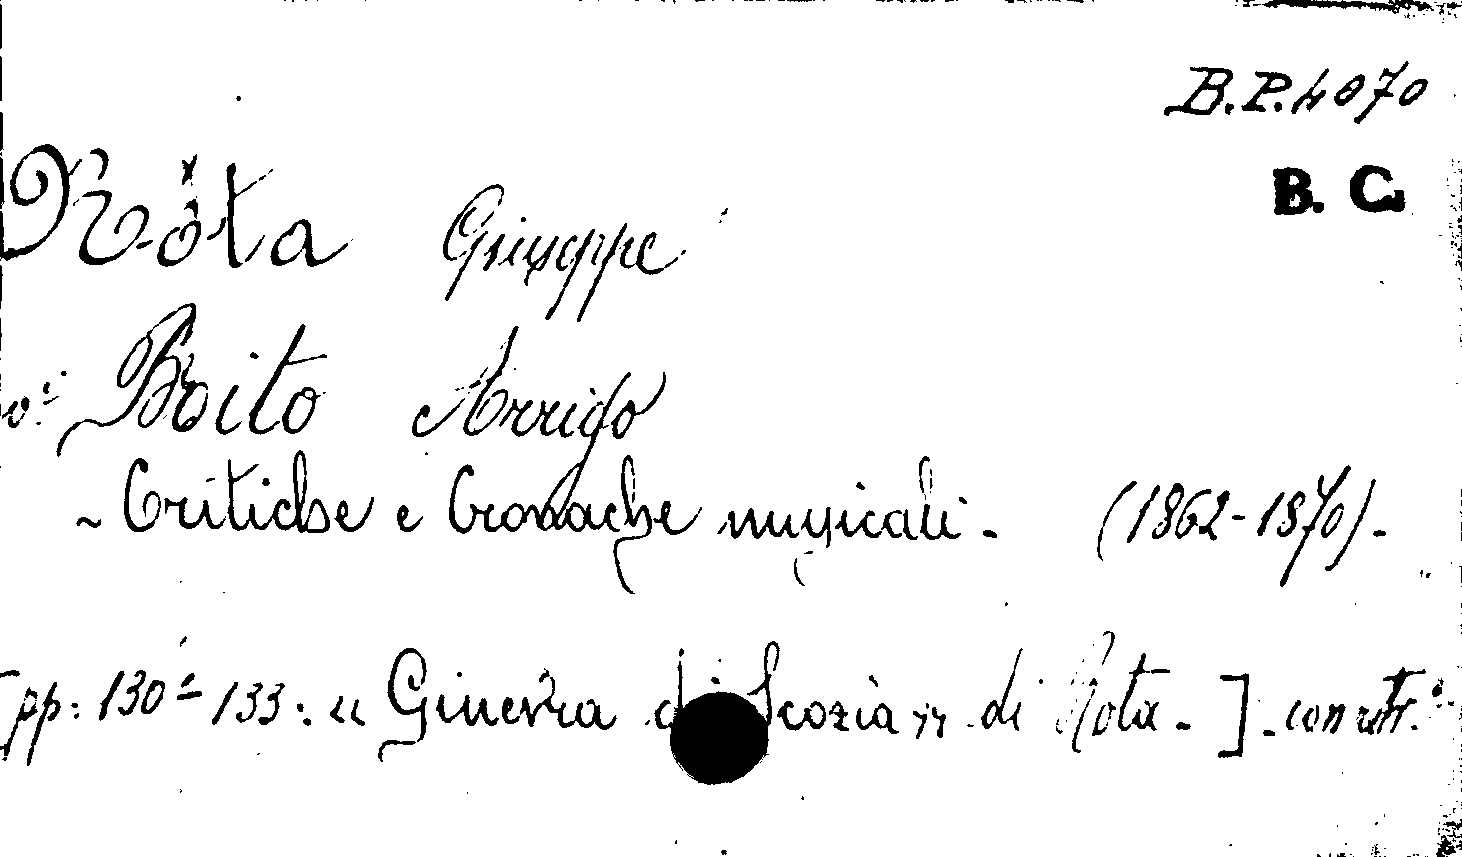 B.P. 4070
B. C.
Rota Giuseppe
vo: Boito Arrigo
- Critiche e Cronache musicali - (1862-1870).-
[pp: 130 - 133: « Ginevra di Scozia » di Rota - ] - con ritr.